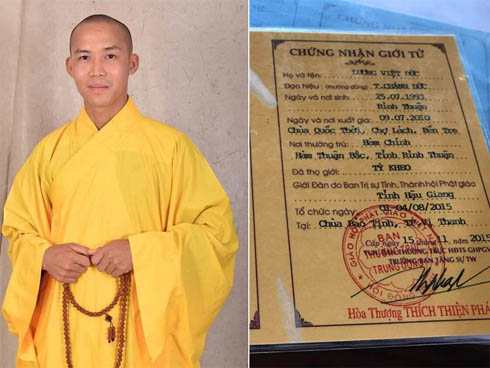 CHỨNG NHẬN GIỚI TỬ
Họ và tên: LƯƠNG VIỆT ĐỨC
Đạo hiệu (thường dùng) T.CHÁNH ĐỨC
Ngày và nơi sinh: 25.07.1993
Bình Thuận
Ngày và nơi xuất gia: 09.07.2010
Chùa Quốc Thới, Chợ Lách, Bến Tre
Nơi thường trú: Hàm Chính
Hàm Thuận Bắc, Tỉnh Bình Thuận
Đã thọ giới: TỲ KHEO
Giới Đàn do Ban Trị sự Tỉnh, Thành hội Phật giáo
Tỉnh Hậu Giang
Tổ chức ngày: 01-04/08/2015
Tại: Chùa Bảo Tịnh, TP.Vị Thanh
Cấp ngày 15 tháng 11 năm 2015
TUN. BAN THƯỜNG TRỰC HĐTS GHPGV
TRƯỞNG BAN TĂNG SỰ TW
GIÁO HỘI PHẬT GIÁO
BAN
TRUNG ƯƠNG
HỘI ĐỒNG
Hòa Thượng THÍCH THIỆN PHÁ